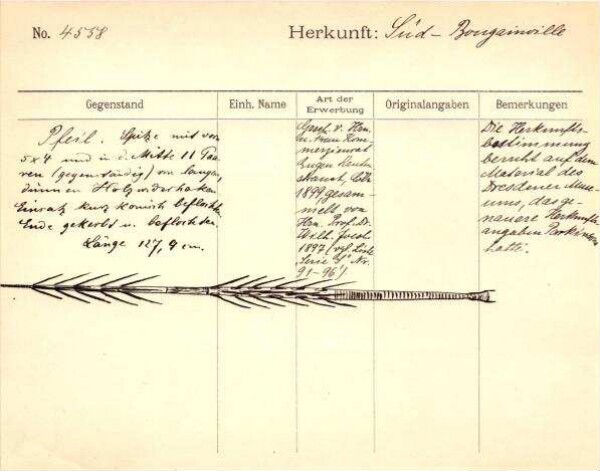 No. 4558
Herkunft: Süd-Bougainville
Gegenstand
Einh. Name
Art der Erwerbung
Originalangaben
Bemerkungen
Pfeil. Spitze mit vorn
5x4 und in d. Mitte 11 Paa-
ren (gegenständig) von langen,
dünnen Holzwiderhaken.
Einsatz kurz konisch beflochten.
Ende gekerbt u. beflochten.
Länge 127,9 cm.
Gesch. v. Hrn.
u. Frau Kom-
merzienrat
Eugen
1899, gesam-
melt von
Hrn. Prof. Dr.
Wilh. Joest
1897 (vgl. Liste
"Serie S" Nr.
91-96")
Die Herkunfts-
bestimmung
beruht auf dem
Material des
Dresdener Muse-
ums, das ge-
nauere Herkunfts-
angaben Parkinsons
hatte.